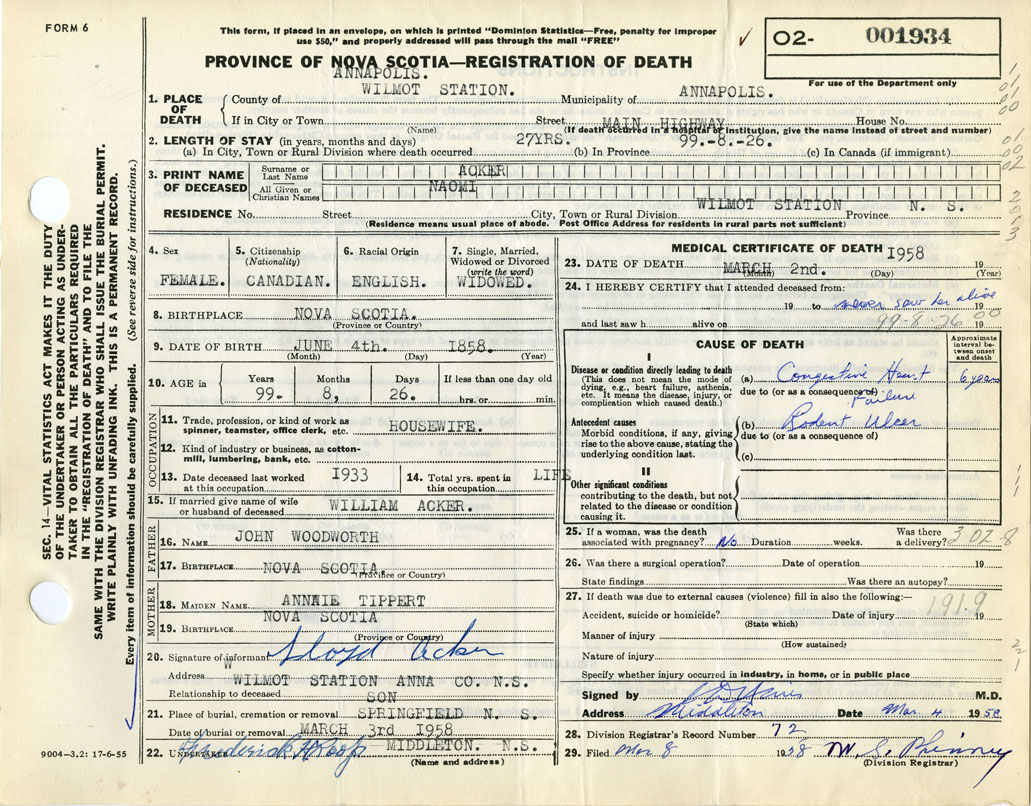 FORM 6
This form, if placed in an envelope, on which is printed "Dominion Statistics—Free, penalty for improper
use $50," and properly addressed will pass through the mail "FREE"
✓
O2- 001934
For use of the Department only
PROVINCE OF NOVA SCOTIA—REGISTRATION OF DEATH
1. PLACE OF DEATH
County of ANNAPOLIS. Municipality of ANNAPOLIS.
If in City or Town WILMOT STATION. Street MAIN HIGHWAY House No.
(Name) (If death occurred in a hospital or institution, give the name instead of street and number)
2. LENGTH OF STAY (in years, months and days)
(a) In City, Town or Rural Division where death occurred 27YRS. (b) In Province 99.-8.-26. (c) In Canada (if immigrant)
3. PRINT NAME OF DECEASED
Surname or Last Name ACKER
All Given or Christian Names NAOMI
RESIDENCE No. Street City, Town or Rural Division WILMOT STATION Province N. S.
(Residence means usual place of abode. Post Office Address for residents in rural parts not sufficient)
4. Sex
FEMALE.
5. Citizenship
(Nationality)
CANADIAN.
6. Racial Origin
ENGLISH.
7. Single, Married,
Widowed or Divorced
(write the word)
WIDOWED.
8. BIRTHPLACE NOVA SCOTIA.
(Province or Country)
9. DATE OF BIRTH JUNE 4th. 1858.
(Month) (Day) (Year)
10. AGE in Years Months Days If less than one day old
99. 8, 26. hrs. or min.
OCCUPATION
11. Trade, profession, or kind of work as
spinner, teamster, office clerk, etc. HOUSEWIFE.
12. Kind of industry or business, as cotton-
mill, lumbering, bank, etc.
13. Date deceased last worked
at this occupation 1933
14. Total yrs. spent in
this occupation LIFE
15. If married give name of wife
or husband of deceased WILLIAM ACKER.
FATHER
16. NAME JOHN WOODWORTH
17. BIRTHPLACE NOVA SCOTIA.
(Province or Country)
MOTHER
18. MAIDEN NAME ANNNIE TIPPERT
19. BIRTHPLACE NOVA SCOTIA
(Province or Country)
20. Signature of informant Lloyd Acker
W
Address WILMOT STATION ANNA CO. N.S.
Relationship to deceased SON
21. Place of burial, cremation or removal SPRINGFIELD N. S.
Date of burial or removal MARCH 3rd 1958
22. UNDERTAKER MIDDLETON. N.S.
(Name and address)
MEDICAL CERTIFICATE OF DEATH
23. DATE OF DEATH MARCH 2nd. 1958 19
(Month) (Day) (Year)
24. I HEREBY CERTIFY that I attended deceased from:
19 to never saw her alive 19
and last saw h alive on 99-8-26 00 19
CAUSE OF DEATH
Approximate
interval be-
tween onset
and death
I
Disease or condition directly leading to death
(This does not mean the mode of
dying, e.g., heart failure, asthenia,
etc. It means the disease, injury, or
complication which caused death.)
(a) Congestive Heart Failure 6 years
due to (or as a consequence of)
Antecedent causes
Morbid conditions, if any, giving
rise to the above cause, stating the
underlying condition last.
(b) Rodent Ulcer
due to (or as a consequence of)
(c)
II
Other significant conditions
contributing to the death, but not
related to the disease or condition
causing it.
25. If a woman, was the death
associated with pregnancy? No Duration weeks. Was there
a delivery?
26. Was there a surgical operation? Date of operation 19
State findings Was there an autopsy?
27. If death was due to external causes (violence) fill in also the following:—
1919
Accident, suicide or homicide? Date of injury 19
(State which)
Manner of injury
(How sustained)
Nature of injury
Specify whether injury occurred in industry, in home, or in public place
Signed by M.D.
Address Middleton Date Mar. 4 1958
28. Division Registrar's Record Number 72
29. Filed Mar 8 1958 W. S. Phinney
(Division Registrar)
SEC. 14—VITAL STATISTICS ACT MAKES IT THE DUTY
OF THE UNDERTAKER OR PERSON ACTING AS UNDER-
TAKER TO OBTAIN ALL THE PARTICULARS REQUIRED
IN THE "REGISTRATION OF DEATH" AND TO FILE THE
SAME WITH THE DIVISION REGISTRAR WHO SHALL ISSUE THE BURIAL PERMIT.
WRITE PLAINLY WITH UNFADING INK. THIS IS A PERMANENT RECORD.
Every item of information should be carefully supplied. (See reverse side for instructions.)
9004—3.2: 17-6-55